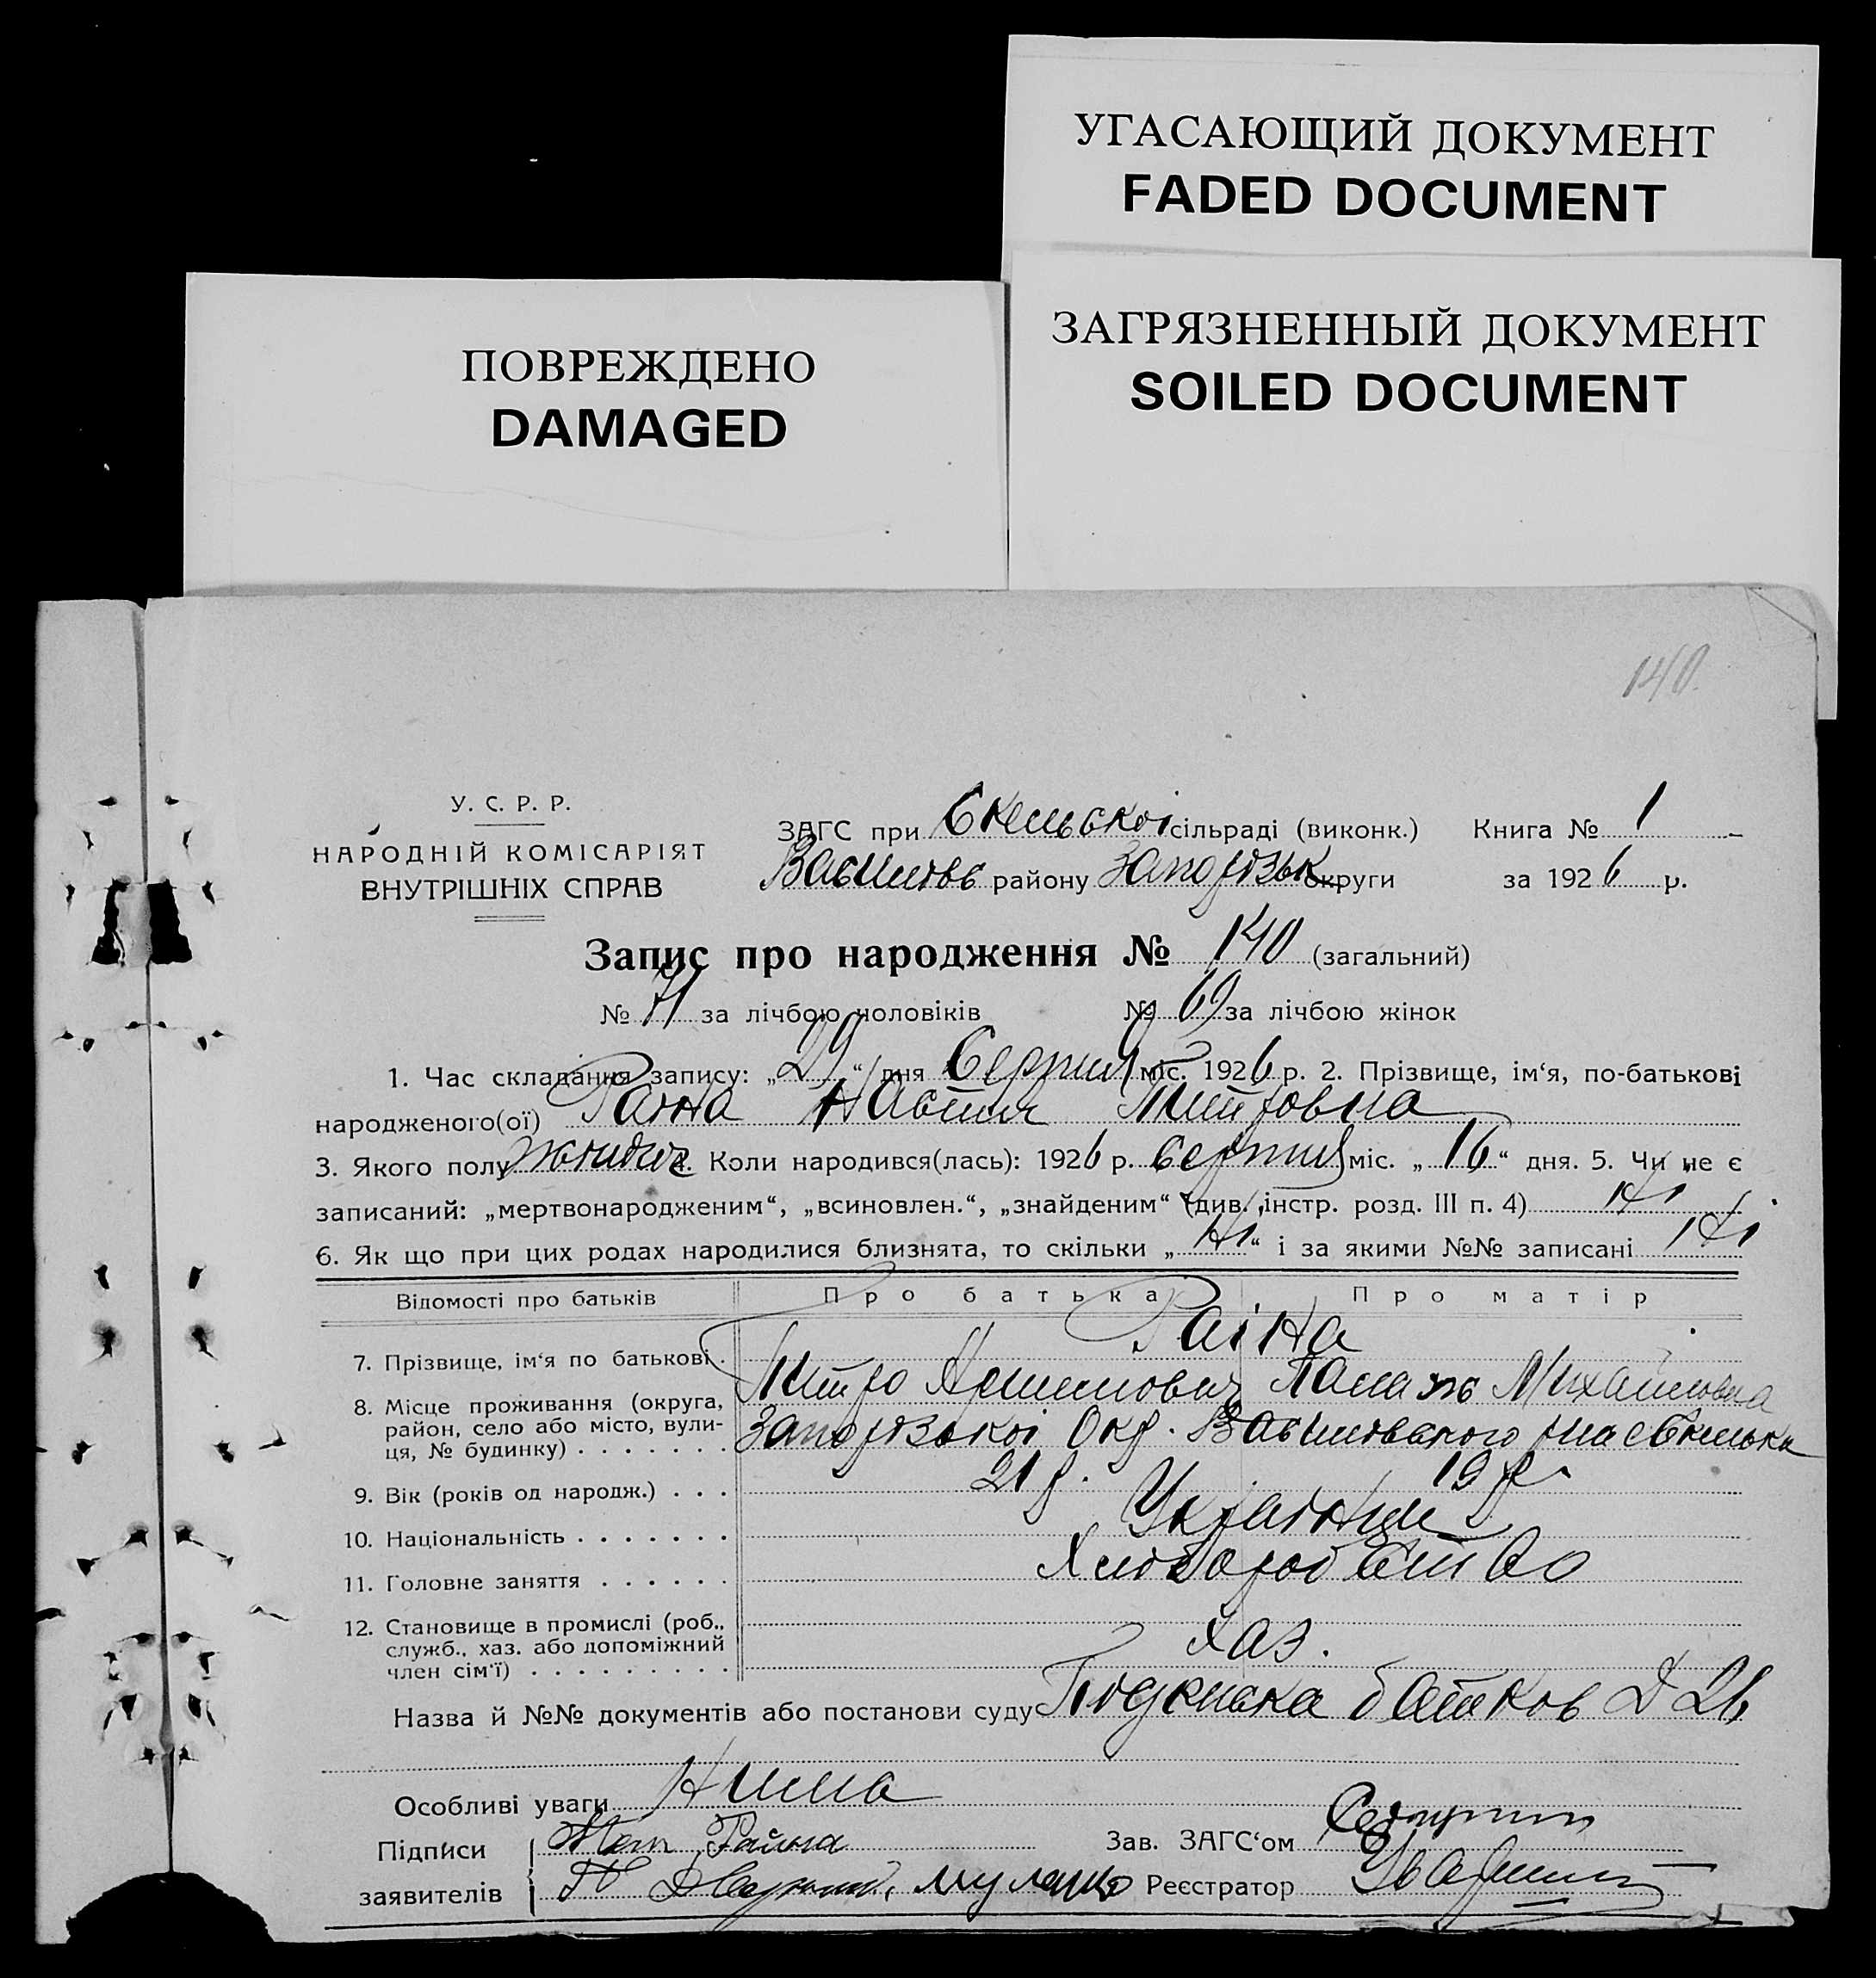 УГАСАЮЩИЙ ДОКУМЕНТ
FADED DOCUMENT
ЗАГРЯЗНЕННЫЙ ДОКУМЕНТ
SOILED DOCUMENT
ПОВРЕЖДЕНО
DAMAGED
140.
У. С. Р. Р.
НАРОДНІЙ КОМІСАРІЯТ
ВНУТРІШНІХ СПРАВ
ЗАГС при Скельскоі сільраді (виконк.) Книга № 1
Василівс району Запорізьк округи за 1926 р.
Запис про народження № 140 (загальний)
№ 71 за лічбою чоловіків № 69 за лічбою жінок
1. Час складання запису: „29“ дня Серпня міс. 1926 р. 2. Прізвище, ім‘я, по-батькові
народженого(ої) Раіна Настя Митровна
3. Якого полу жіноч 4. Коли народився(лась): 1926 р. серпня міс. „16“ дня. 5. Чи не є
записаний: „мертвонародженим“, „всиновлен.“, „знайденим“ (див. інстр. розд. III п. 4) Ні
6. Як що при цих родах народилися близнята, то скільки „Ні“ і за якими №№ записані Ні
Відомості про батьків Про батька Про матір
7. Прізвище, ім‘я по батькові . Раіна
Митро Пала Михайловна
8. Місце проживання (округа,
район, село або місто, вули-
ця, № будинку) . . . . . . . Запорізькоі Окр. Василівского
9. Вік (років од народж.) . . . 21 р. 19 р.
10. Національність . . . . . . . Украінци
11. Головне заняття . . . . . . Хліборобство
12. Становище в промислі (роб.,
служб., хаз. або допоміжний
член сім‘ї) . . . . . . . . . Хаз.
Назва й №№ документів або постанови суду Подписка батков 26
Особливі уваги Нима
Підписи Раіина Зав. ЗАГС‘ом
заявителів Реєстратор